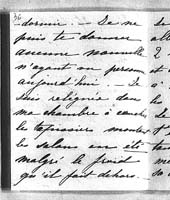 36
dormir. — Je ne
puis te donner
aucune nouvelle
n'ayant vu personne
aujourd'hui. — Je
suis reléguée dans
ma chambre à coucher
les tapissiers montent
les salons en été
malgré le froid
qu'il fait dehors.